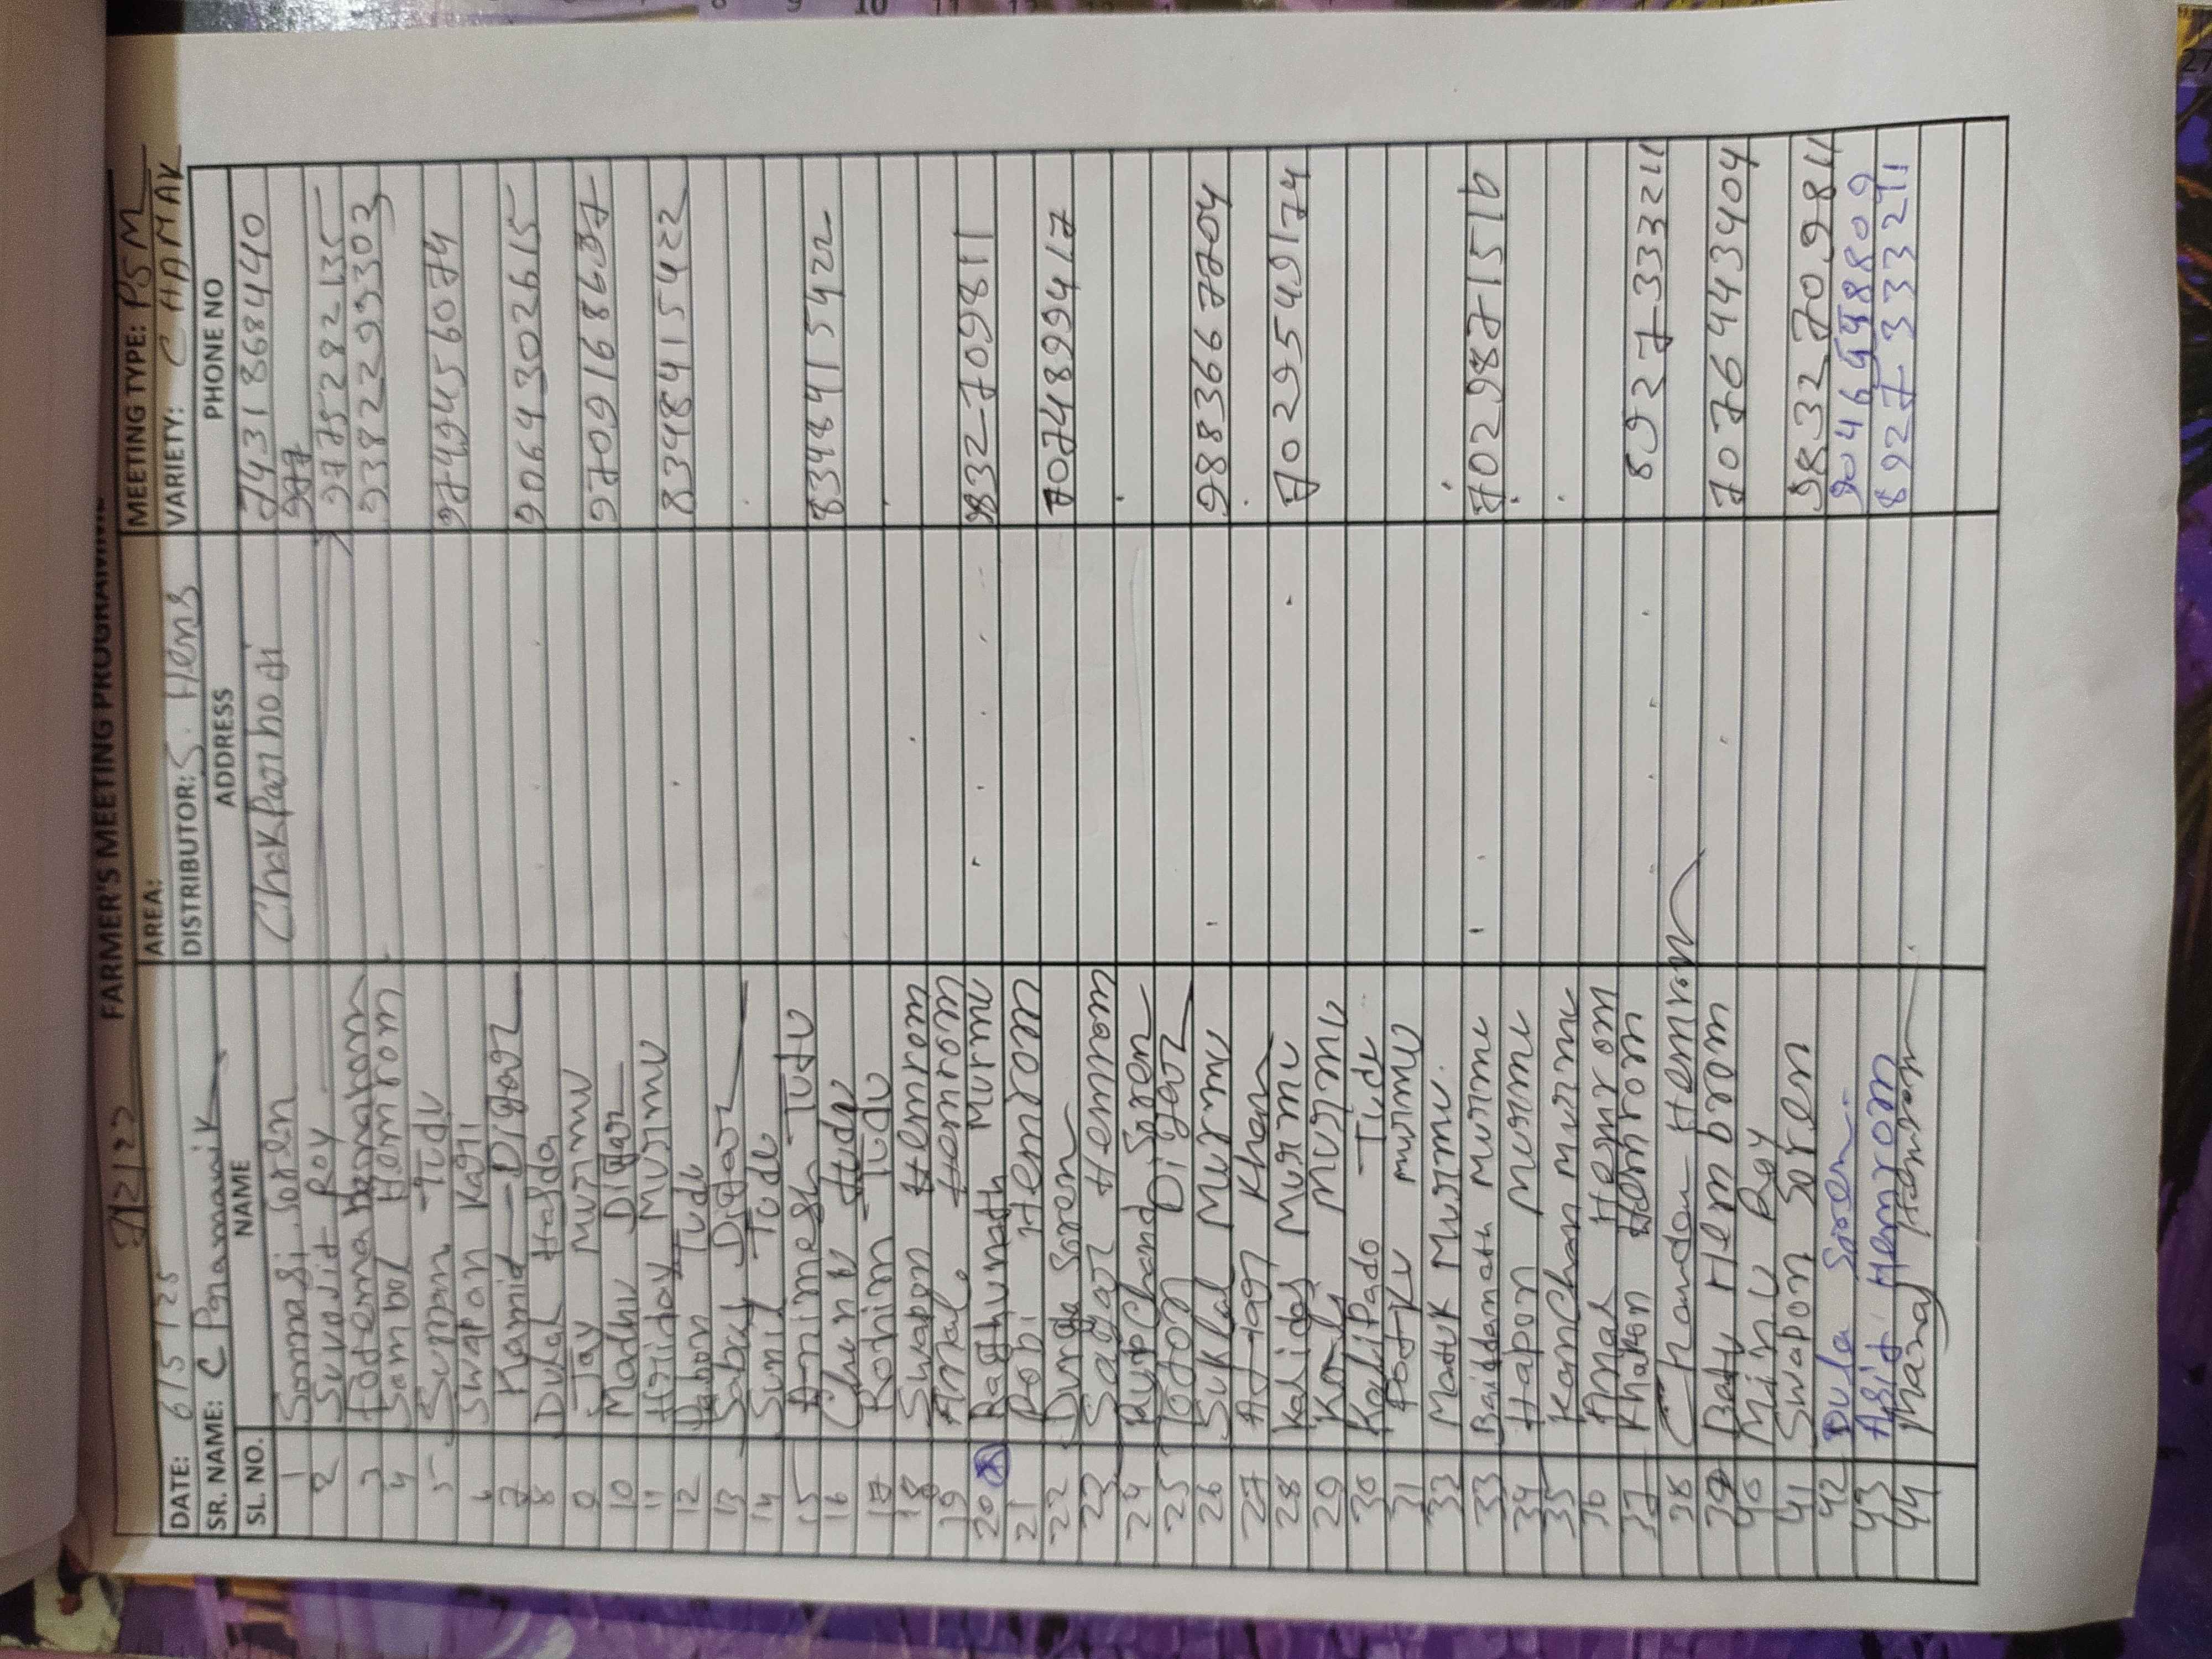 FARMER'S MEETING PROGRAMME
DATE: 6/5/25 AREA: MEETING TYPE: PSM
SR. NAME: C Pramanik DISTRIBUTOR: S. Hens VARIETY: CHAMAK
SL. NO. NAME ADDRESS PHONE NO
1 Sonnasi Soren Chakparihodi 7431868440
2 Suvojit Roy 977
3 9775282135
4 Sambol Hemrom 9382299303
5 Suman Tudu
6 Swapan Kagi 9749456074
7 Kamid Digar
8 Dulal Hasda 9064302615
9 Jay Murmu
10 Madhu Digar 9709168637
11 Hriday Murmu
12 Habon Tudu 8348415422
13 Sabuj Digar
14 Sunil Tudu
15 Animesh Tudu
16 Chunu Tudu 8348415422
17 Rohim Tudu
18 Swapon Hemrom
19 Amal Hemrom
20 Raghunath Murmu 9832709811
21 Robi Hemrom
22 Durga Soren 7074899417
23 Sagar Hemrom
24 Rupchand Soren
25 Toton Digar
26 Suklal Murmu 9883667704
27 Khan
28 Kalidas Murmu 7029549174
29 Murmu
30 Kalipado Tudu
31 Murmu
32 Murmu
33 Baiddanath Murmu 7029871516
34 Hapon Murmu
35 Kanchan Murmu
36 Amal Hemrom
37 Khakon Hemrom 8927333211
38 Chandan Hemrom
39 Hembrom 7076443404
40 Minu Roy
41 Swapon Soren 9832709811
42 Dula Soren 9046998809
43 Asit Hemrom 8927333291
44 Manoj Hemrom